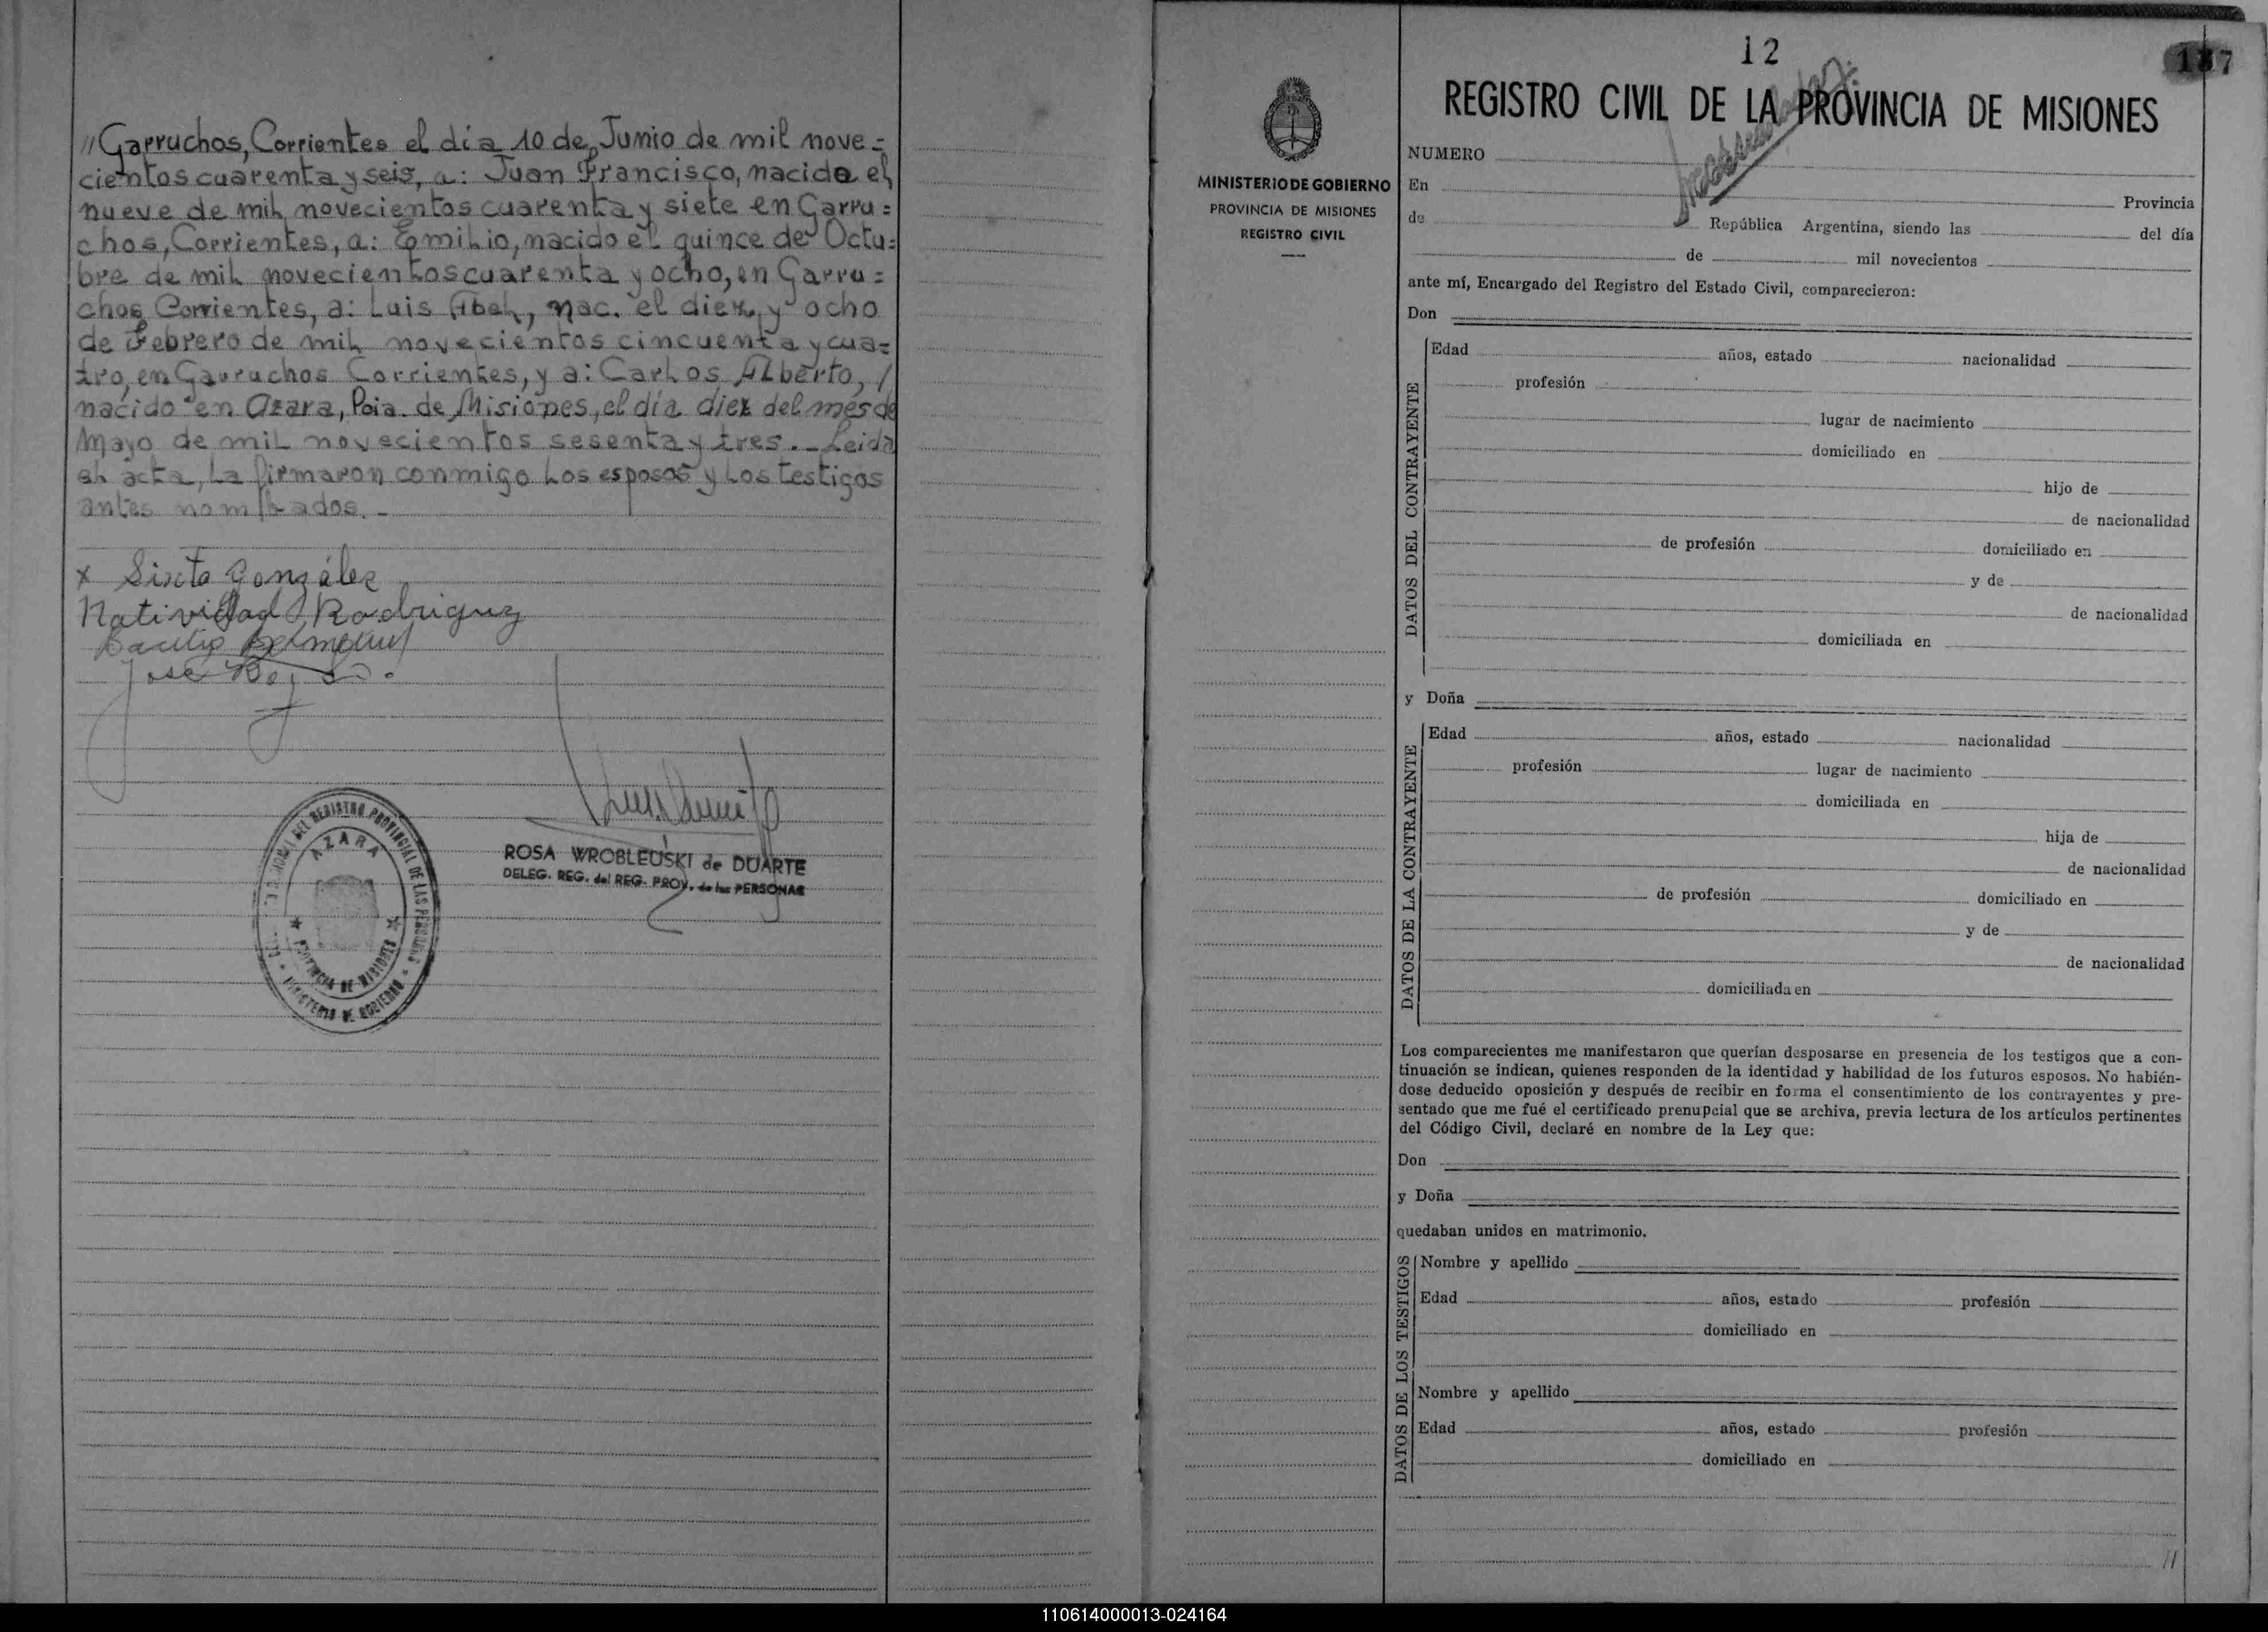 // Garruchos, Corrientes el día 10 de Junio de mil nove=
cientos cuarenta y seis, a: Juan Francisco, nacido el
nueve de mil novecientos cuarenta y siete en Garru=
chos, Corrientes, a: Emilio, nacido el quince de Octu=
bre de mil novecientos cuarenta y ocho, en Garru=
chos Corrientes, a: Luis Abel, nac. el diez y ocho
de Febrero de mil novecientos cincuenta y cua=
tro, en Garruchos Corrientes, y a: Carlos Alberto, /
nacido en Azara, Pcia. de Misiones, el día diez del més de
Mayo de mil novecientos sesenta y tres. - Leida
el acta, la firmaron conmigo los esposos y los testigos
antes nombrados. -
x Sixto González
Natividad Rodriguez
José
DEL REGISTRO PROVINCIAL DE LAS PERSONAS
AZARA
PROVINCIA DE MISIONES
MINISTERIO DE GOBIERNO
ROSA WROBLEUSKI de DUARTE
DELEG. REG. del REG. PROV. de las PERSONAS
MINISTERIO DE GOBIERNO
PROVINCIA DE MISIONES
REGISTRO CIVIL
12
REGISTRO CIVIL DE LA PROVINCIA DE MISIONES
NUMERO
En Provincia
de República Argentina, siendo las del día
de mil novecientos
ante mí, Encargado del Registro del Estado Civil, comparecieron:
Don
DATOS DEL CONTRAYENTE
Edad años, estado nacionalidad
profesión
lugar de nacimiento
domiciliado en
hijo de
de nacionalidad
de profesión domiciliado en
y de
de nacionalidad
domiciliada en
y Doña
DATOS DE LA CONTRAYENTE
Edad años, estado nacionalidad
profesión lugar de nacimiento
domiciliada en
hija de
de nacionalidad
de profesión domiciliado en
y de
de nacionalidad
domiciliada en
Los comparecientes me manifestaron que querían desposarse en presencia de los testigos que a con-
tinuación se indican, quienes responden de la identidad y habilidad de los futuros esposos. No habién-
dose deducido oposición y después de recibir en forma el consentimiento de los contrayentes y pre-
sentado que me fué el certificado prenupcial que se archiva, previa lectura de los artículos pertinentes
del Código Civil, declaré en nombre de la Ley que:
Don
y Doña
quedaban unidos en matrimonio.
DATOS DE LOS TESTIGOS
Nombre y apellido
Edad años, estado profesión
domiciliado en
Nombre y apellido
Edad años, estado profesión
domiciliado en
//
110614000013-024164